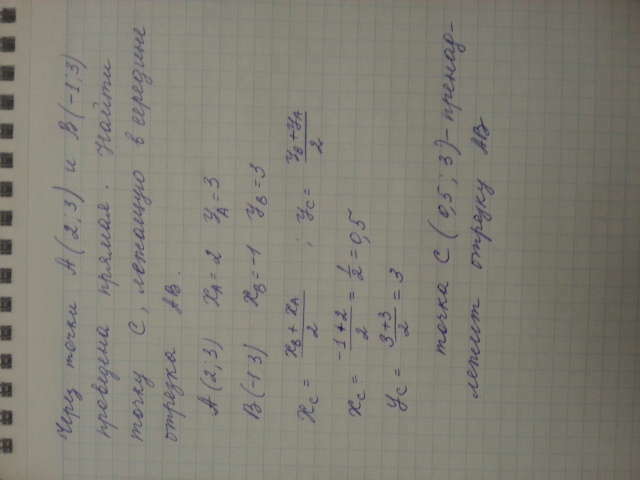 Через точки A(2;3) и B(-1;3)
проведена прямая. Найти
точку C, лежащую в середине
отрезка AB.
A(2;3) x_A = 2 y_A = 3
B(-1 3) x_B = -1 y_B = 3
x_C = \frac{x_B + x_A}{2} ; y_C = \frac{y_B + y_A}{2}
x_C = \frac{-1+2}{2} = \frac{1}{2} = 0,5
y_C = \frac{3+3}{2} = 3
точка C (0,5; 3) - пренад-
лежит отрезку AB